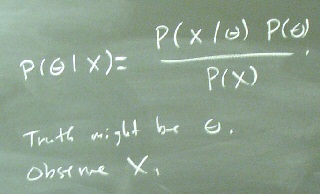 P(θ|X) = P(X|θ) P(θ) / P(X).
Truth might be θ.
Observe X.